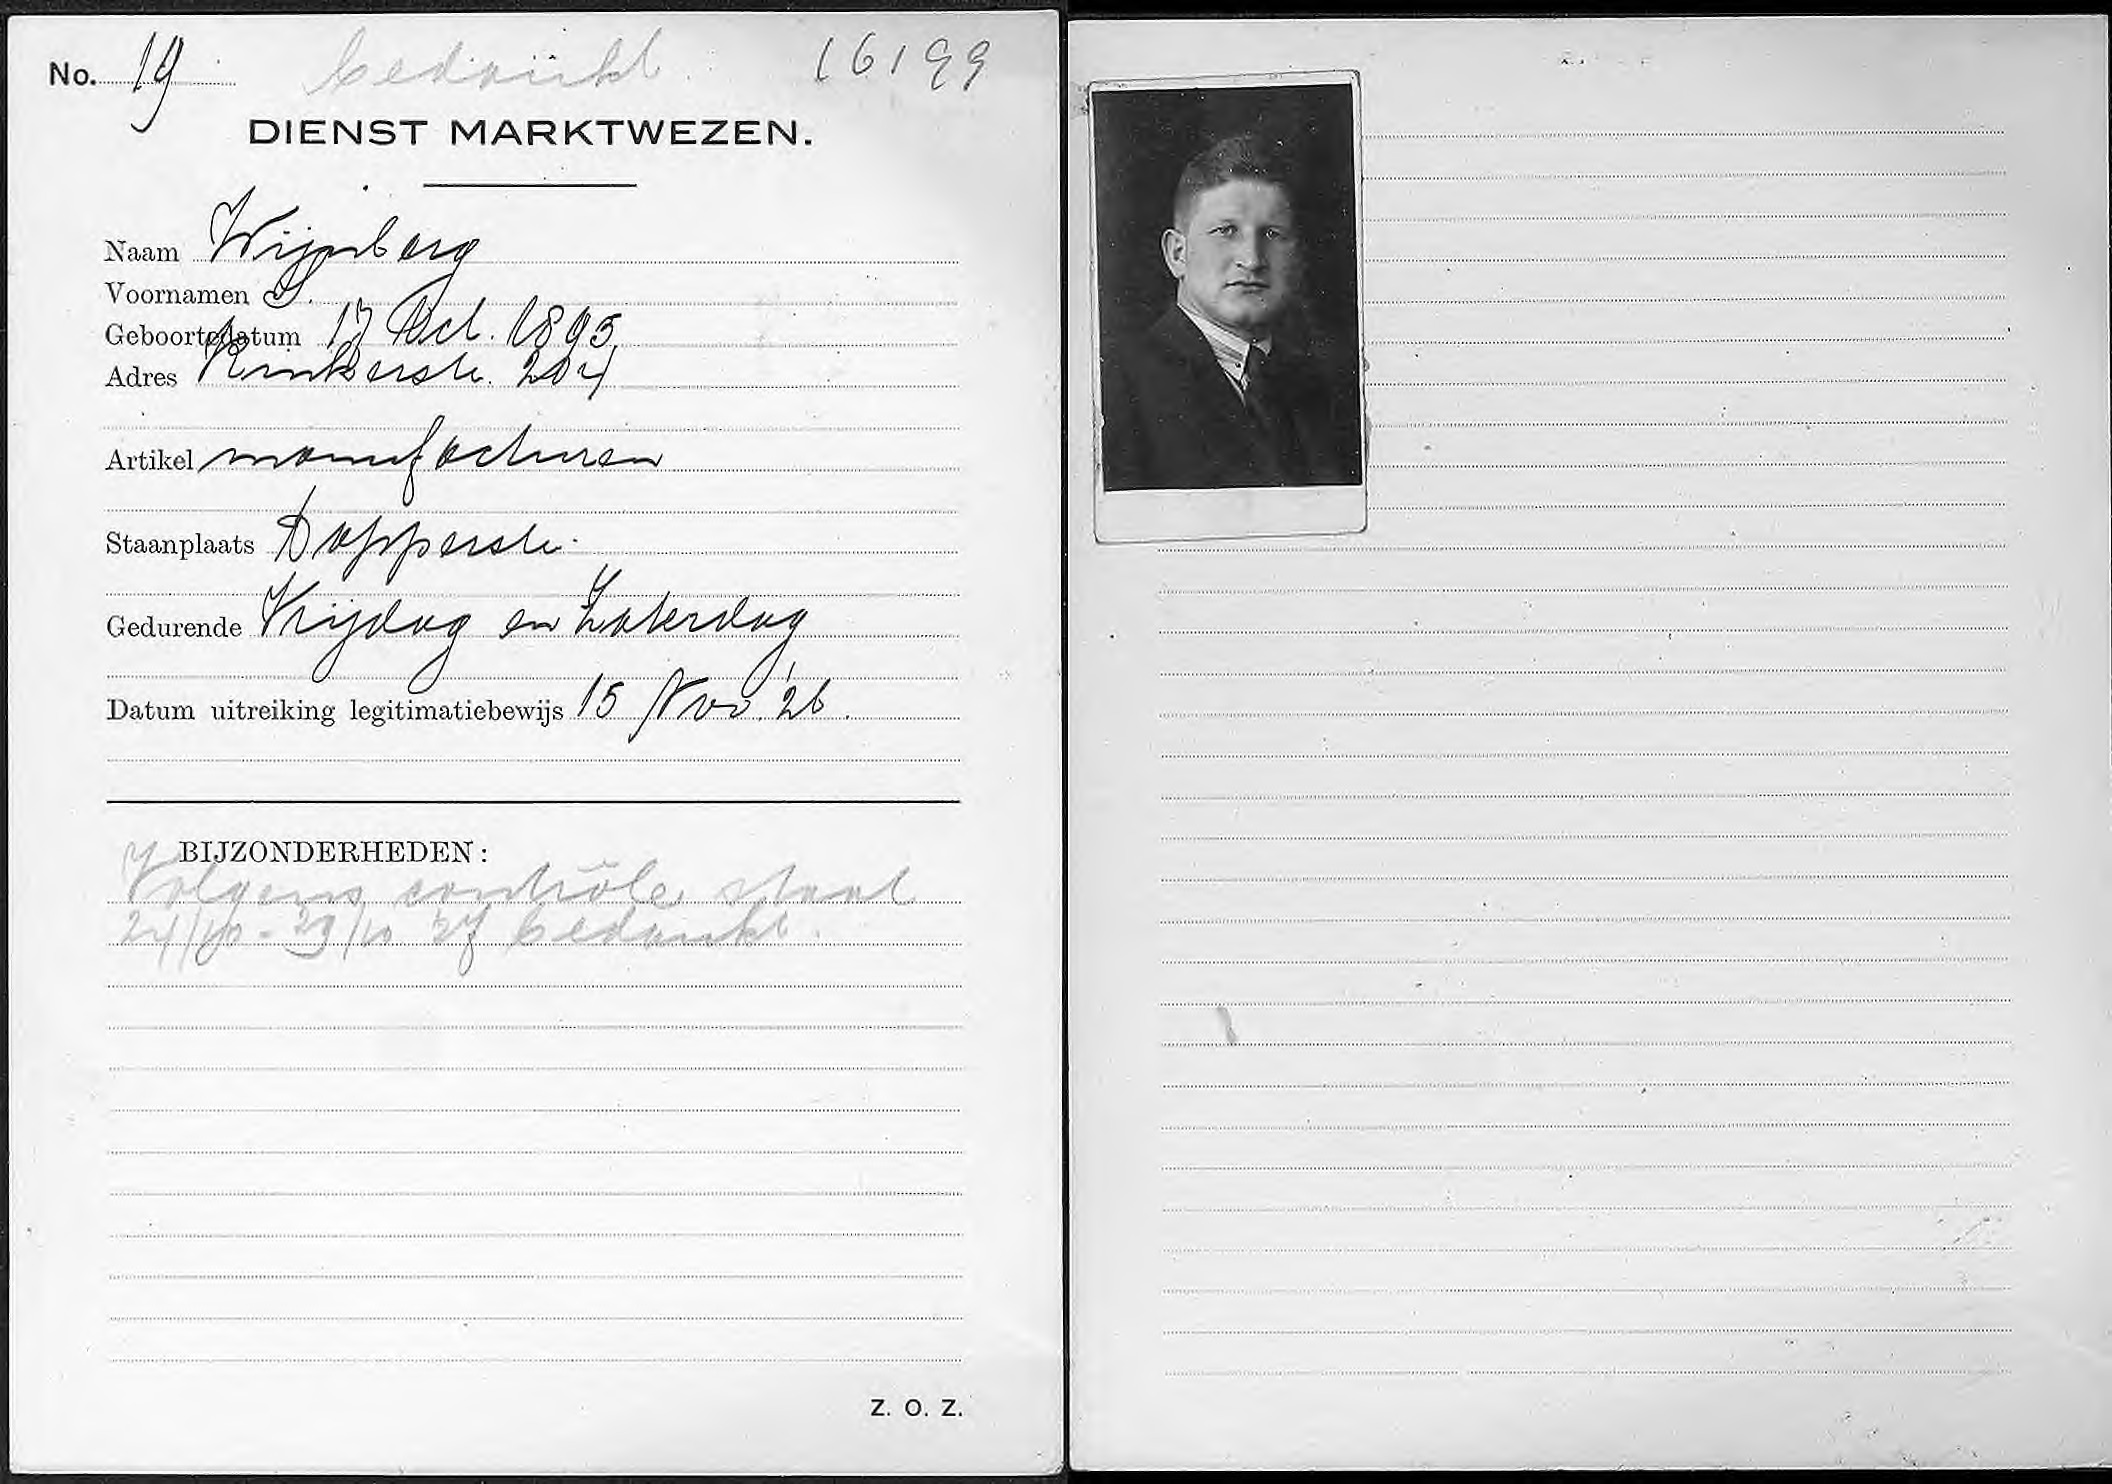 No. 19 bedankt. 16199
DIENST MARKTWEZEN.
Naam Wijnberg
Voornamen S.
Geboortedatum 17 Oct. 1895.
Adres Kinkerstr. 204
Artikel manufacturen
Staanplaats Dapperstr.
Gedurende Vrijdag en Zaterdag
Datum uitreiking legitimatiebewijs 15 Nov. '26.
BIJZONDERHEDEN:
Volgens contrôle staat
24/10 - 29/10 '27 bedankt.
Z. O. Z.